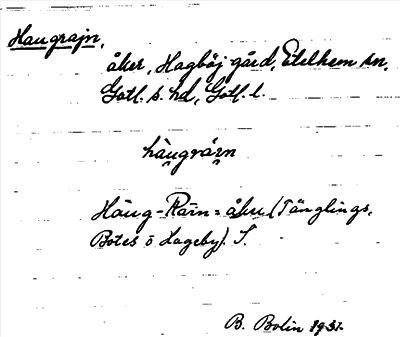 Haugrajn,
åker, Hagböj gård, Etelhem sn,
Gotl. s. hd, Gotl. l.
hàugrárn
Häug-Rain = åker (Tänglings,
Botes o Hageby). S.
B. Bolin 1931.